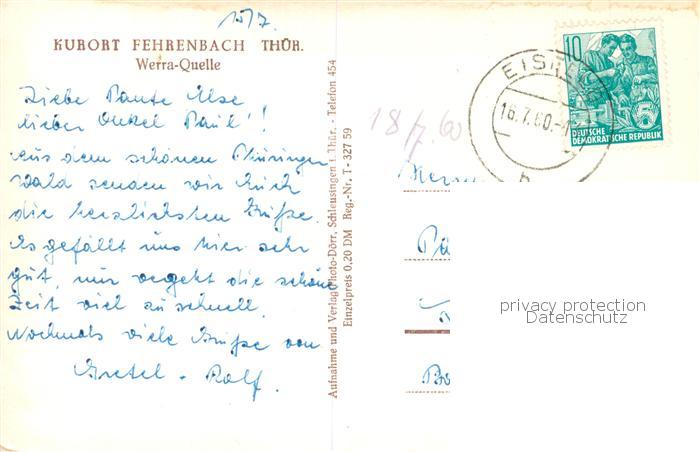 15/7.
KURORT FEHRENBACH THÜR.
Werra-Quelle
Liebe Tante Else
lieber Onkel Paul!
aus dem schönen Thüringer
Wald senden wir Euch
die herzlichsten Grüße.
Es gefällt uns hier sehr
gut, nur vergeht die schöne
Zeit viel zu schnell.
Nochmals viele Grüße von
Gretel - Rolf.
Aufnahme und Verlag Photo-Dörr, Schleusingen i. Thür. · Telefon 454
Einzelpreis 0,20 DM Reg.-Nr. T-327 59
18/7.60
EIS
16.7.60.-
b
10
DEUTSCHE
DEMOKRATISCHE REPUBLIK
privacy protection
Datenschutz